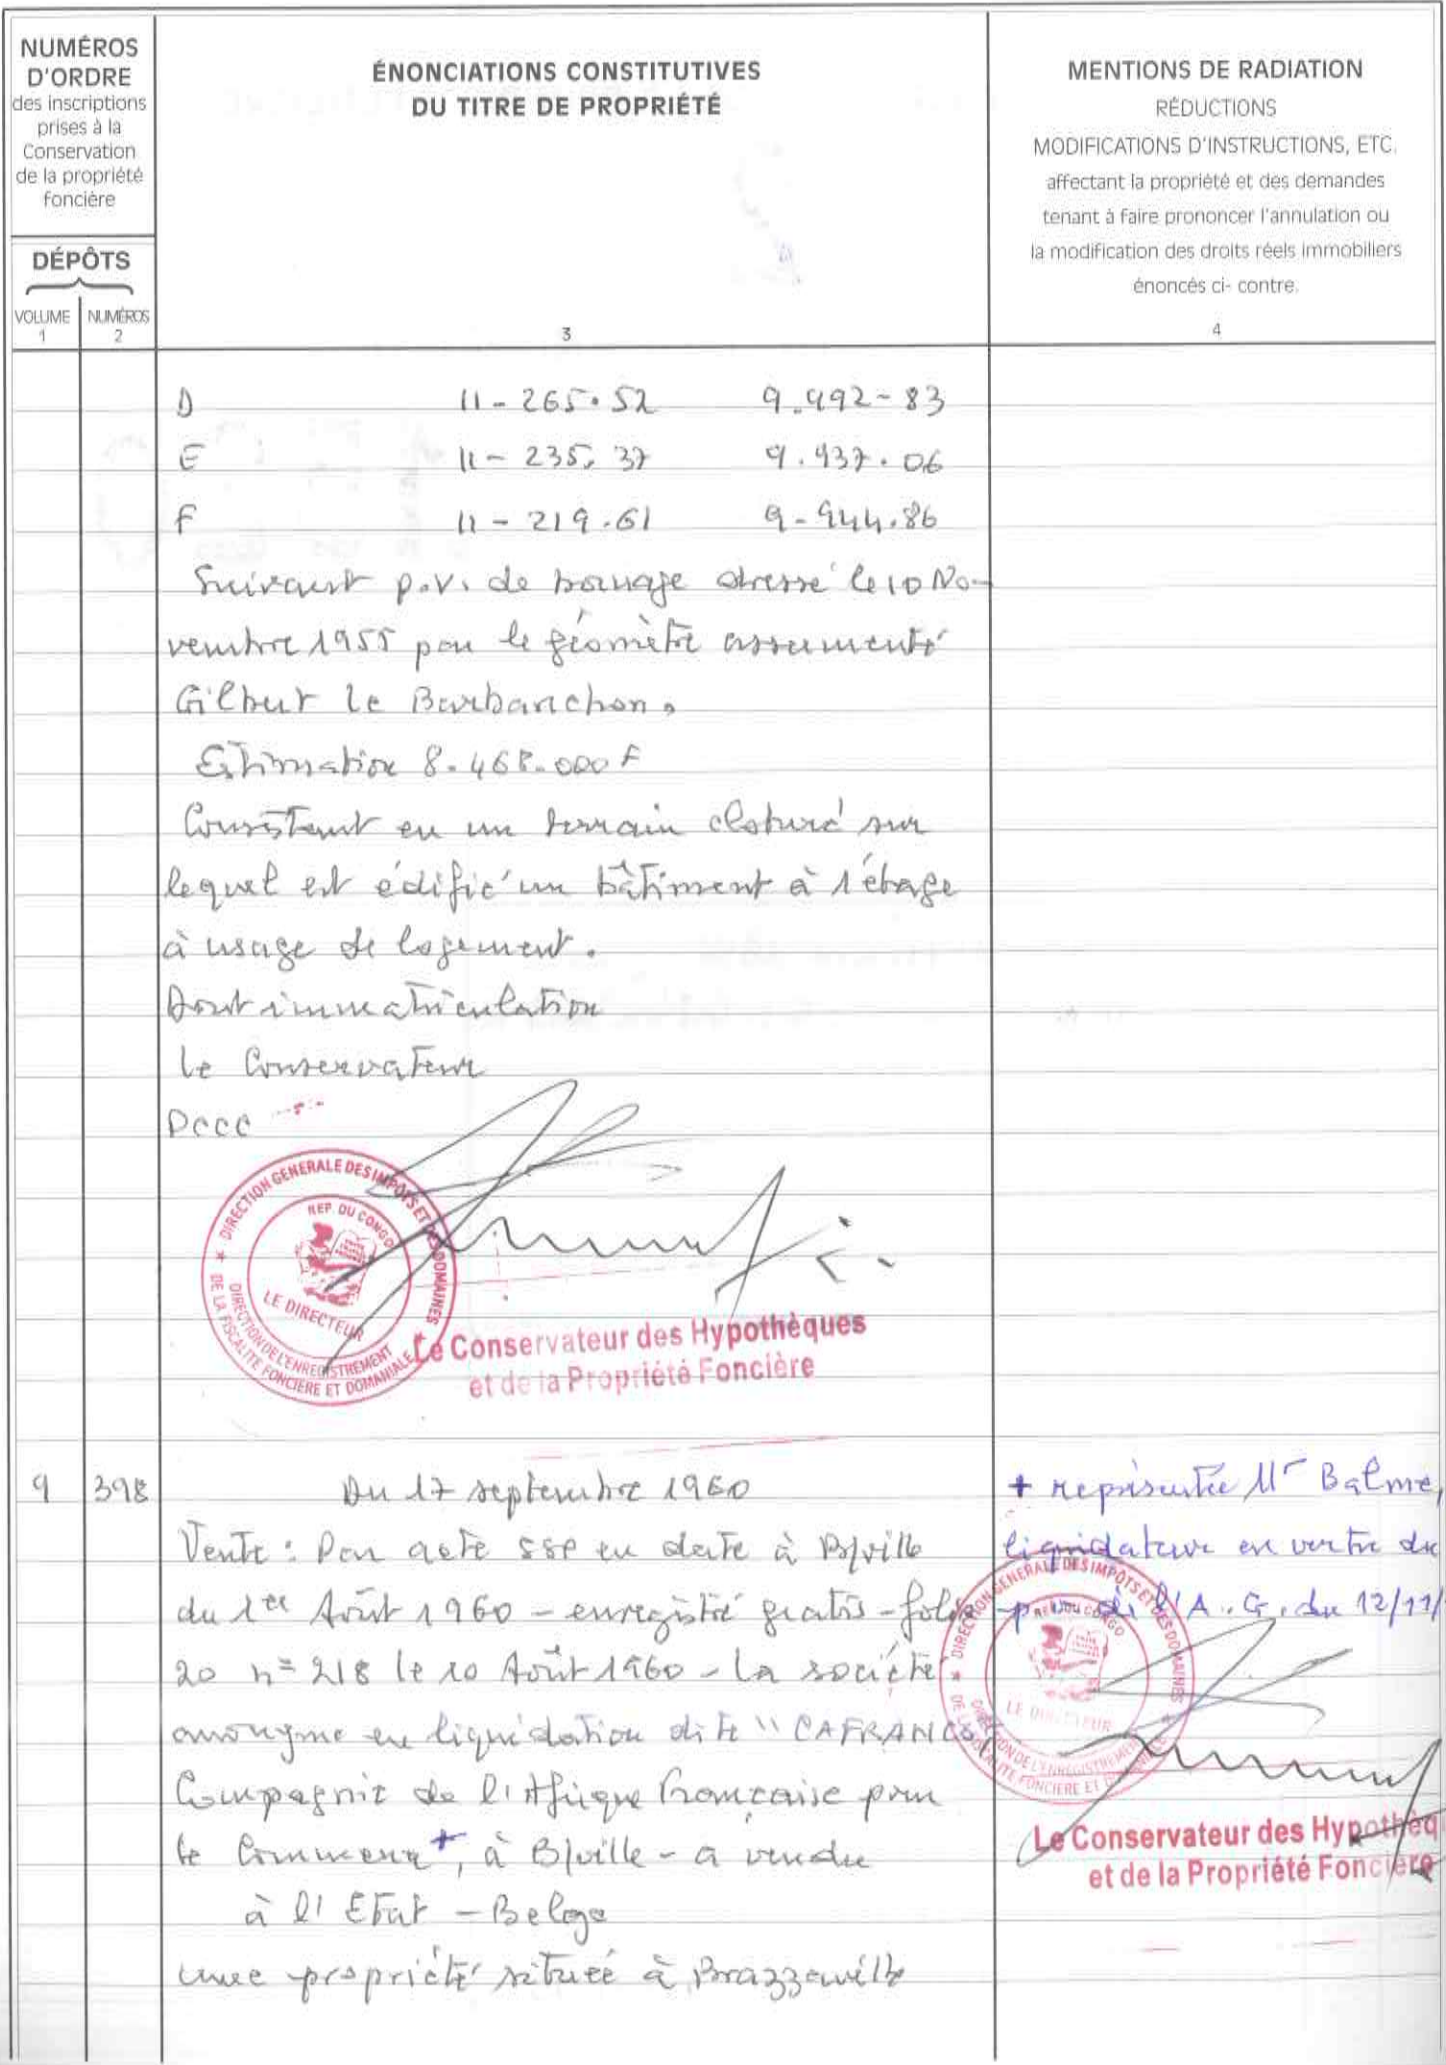 NUMÉROS
D'ORDRE
des inscriptions
prises à la
Conservation
de la propriété
foncière
DÉPÔTS
VOLUME
1
NUMÉROS
2
ÉNONCIATIONS CONSTITUTIVES
DU TITRE DE PROPRIÉTÉ
3
MENTIONS DE RADIATION
RÉDUCTIONS
MODIFICATIONS D'INSTRUCTIONS, ETC.
affectant la propriété et des demandes
tenant à faire prononcer l'annulation ou
la modification des droits réels immobiliers
énoncés ci- contre.
4
D 11-265.52 9.992-83
E 11-235.37 9.937.06
F 11-219.61 9-944.86
Suivant p.v. de bornage dressé le 10 No-
vembre 1955 par le géomètre assermenté
Gilbert le Barbanchon.
Estimation 8.468.000 F
Consistant en un terrain cloturé sur
lequel est édifié un bâtiment à 1 étage
à usage de logement.
Dont immatriculation
le Conservateur
Pccc
DIRECTION GENERALE DES IMPÔTS ET DES DOMAINES
DIRECTION DE L'ENREGISTREMENT
DE LA FISCALITE FONCIERE ET DOMANIALE
REP. DU CONGO
LE DIRECTEUR
Le Conservateur des Hypothèques
et de la Propriété Foncière
9 398 Du 17 septembre 1960
Vente : Par acte SSP en date à B/ville
du 1er Août 1960 - enregistré gratis - folio
20 n° 218 le 10 Août 1960 - la société
anonyme en liquidation dite "CAFRANCO"
Compagnie de l'Afrique Française pour
le Commerce +, à B/ville - a vendu
à l'Etat - Belge
une propriété située à Brazzaville
+ représentée Mr Balme,
liquidateur en vertu du
p.v. de l'A.G. du 12/11/
DIRECTION GENERALE DES IMPÔTS ET DES DOMAINES
DIRECTION DE L'ENREGISTREMENT
DE LA FISCALITE FONCIERE ET DOMANIALE
REP. DU CONGO
LE DIRECTEUR
Le Conservateur des Hypothèq
et de la Propriété Foncière